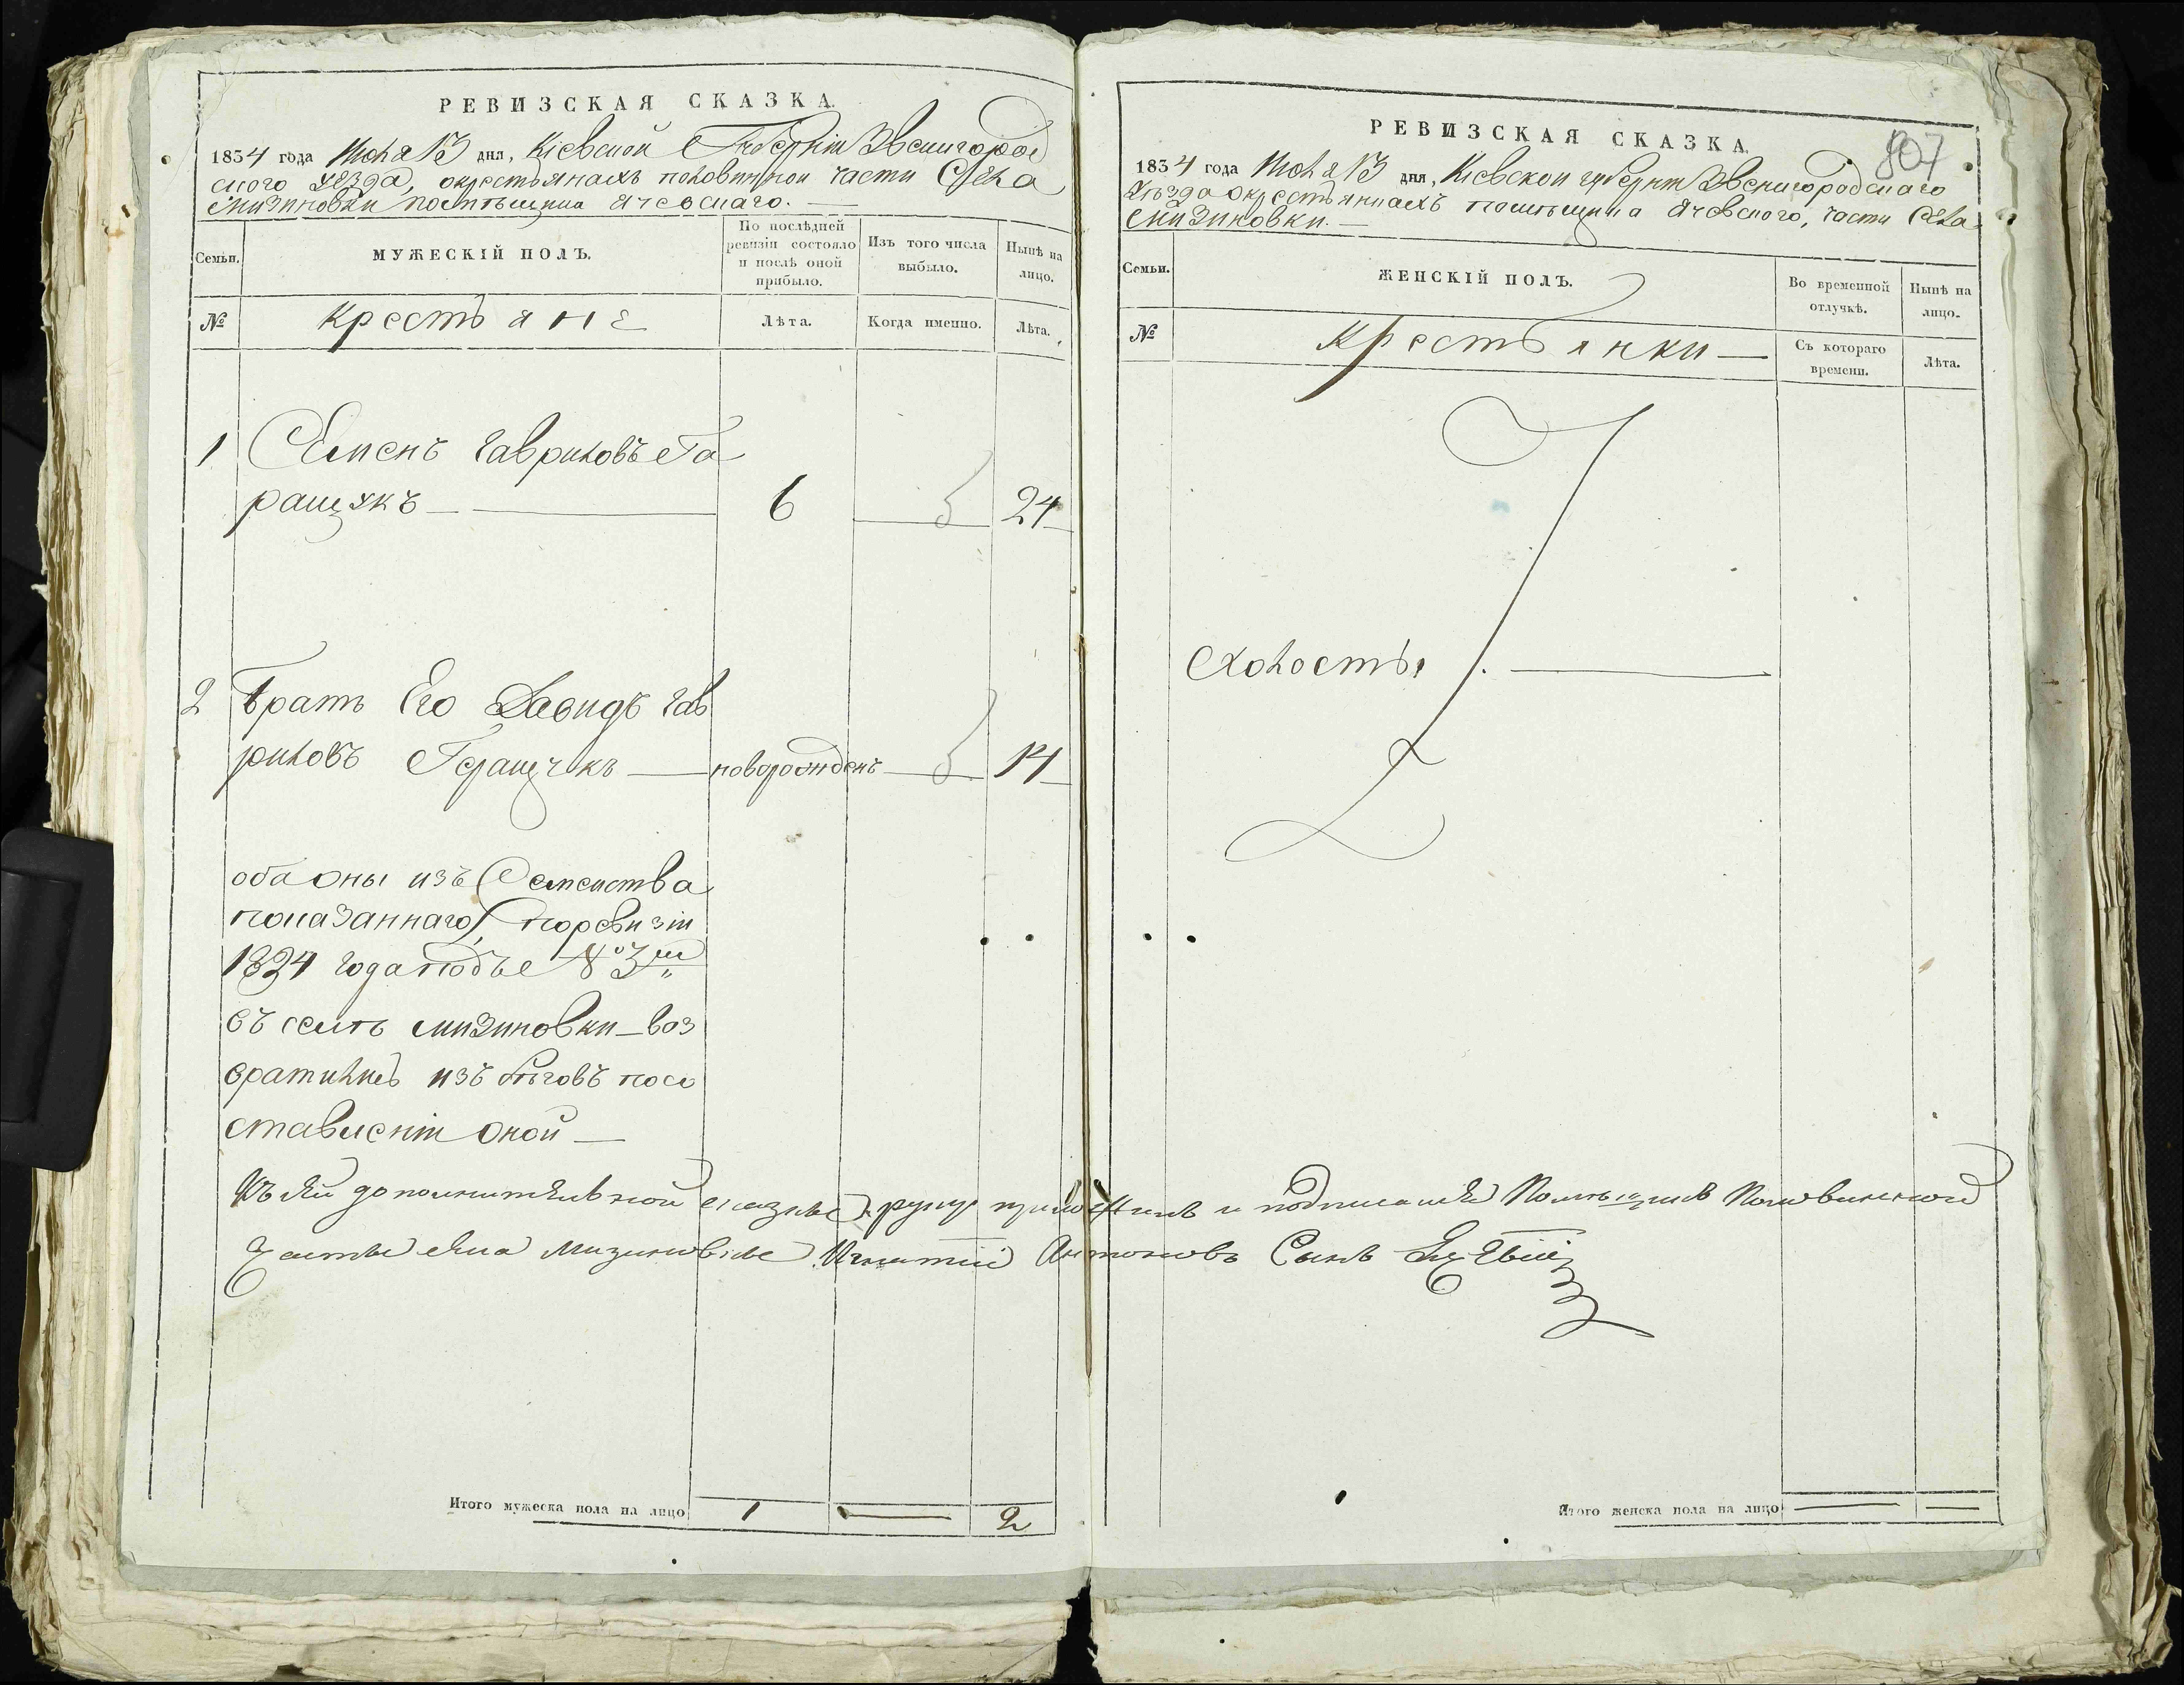 РЕВИЗСКАЯ СКАЗКА.
1834 года Июля 13 дня, Кіевской Губерніи Звенигород
ского уезда, окрестьянахъ половинной части Села
Мизиновки помѣщика Ячевскаго. —
Семьи.
МУЖЕСКІЙ ПОЛЪ.
По послѣдней ревизіи состояло и послѣ оной прибыло.
Изъ того числа выбыло.
Нынѣ на лицо.
№
Крестьяне
Лѣта.
Когда именно.
Лѣта.
1 Семенъ Гавриловъ Га
ращукъ — 6 — 24
2 братъ Его Давидъ Гав
риловъ Геращукъ — новорожденъ — 14
оба оны изъ Семейства
показаннаго, поревизіи
1824 года подъ № 3м
въ селѣ Мизиновки — воз
вратились изъ бѣговъ посо
ставленіи оной —
Къ сей дополнительной сказке руку приложилъ и подписался Помѣщикъ Половинной
Части села Мизиновки Игнатий Антоновъ Сынъ
Итого мужеска пола на лицо 1 — 2
807
РЕВИЗСКАЯ СКАЗКА.
1834 года Июля 13 дня, Кіевской губерніи Звенигородскаго
Уѣзда окрестьянкахъ помѣщика Ячевского, части Села
Мизиновки. —
Семьи.
ЖЕНСКІЙ ПОЛЪ.
Во временной отлучкѣ.
Нынѣ на лицо.
№
Крестьянки —
Съ котораго времени.
Лѣта.
Холосты. —
Итого женска пола на лицо — —